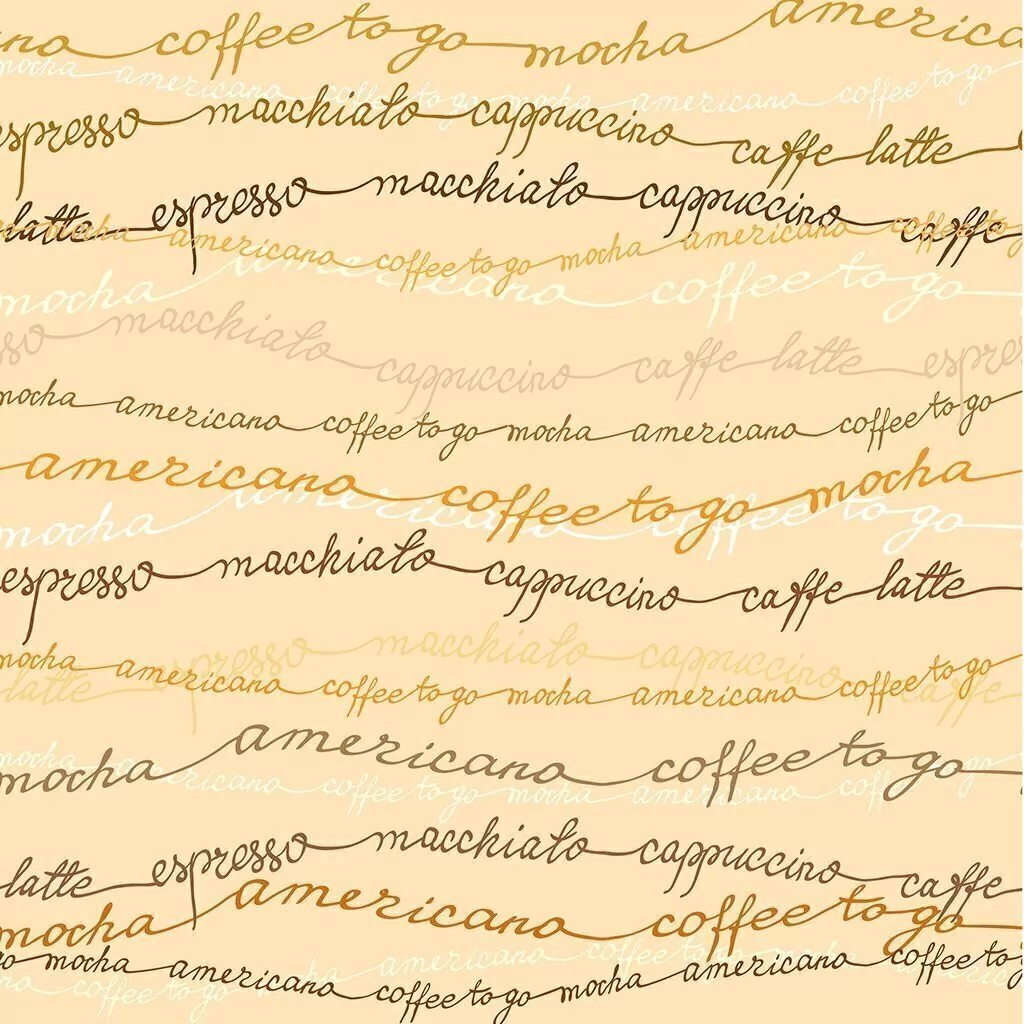 no coffee to go mocha america
mocha americana coffee to go mocha americana coffee to go
espresso macchiato cappuccino caffe latte
latte espresso macchiato cappuccino caffe
mocha americana coffee to go mocha americana coffee to
mocha americano coffee to go
sso macchiato cappuccino caffe latte espre
mocha americana coffee to go mocha americana coffee to go
americano coffee to go mocha
mocha americano coffee to go
espresso macchiato cappuccino caffe latte
espresso macchiato cappuccino
mocha americana coffee to go mocha americana coffee to go
latte caffe
americano coffee to go
mocha
mocha americana coffee to go mocha americana coffee to go
latte espresso macchiato cappuccino caffe
mocha americano coffee to go
go mocha americana coffee to go mocha americana coffee to
coffee to go mocha americana coffee to go mocha